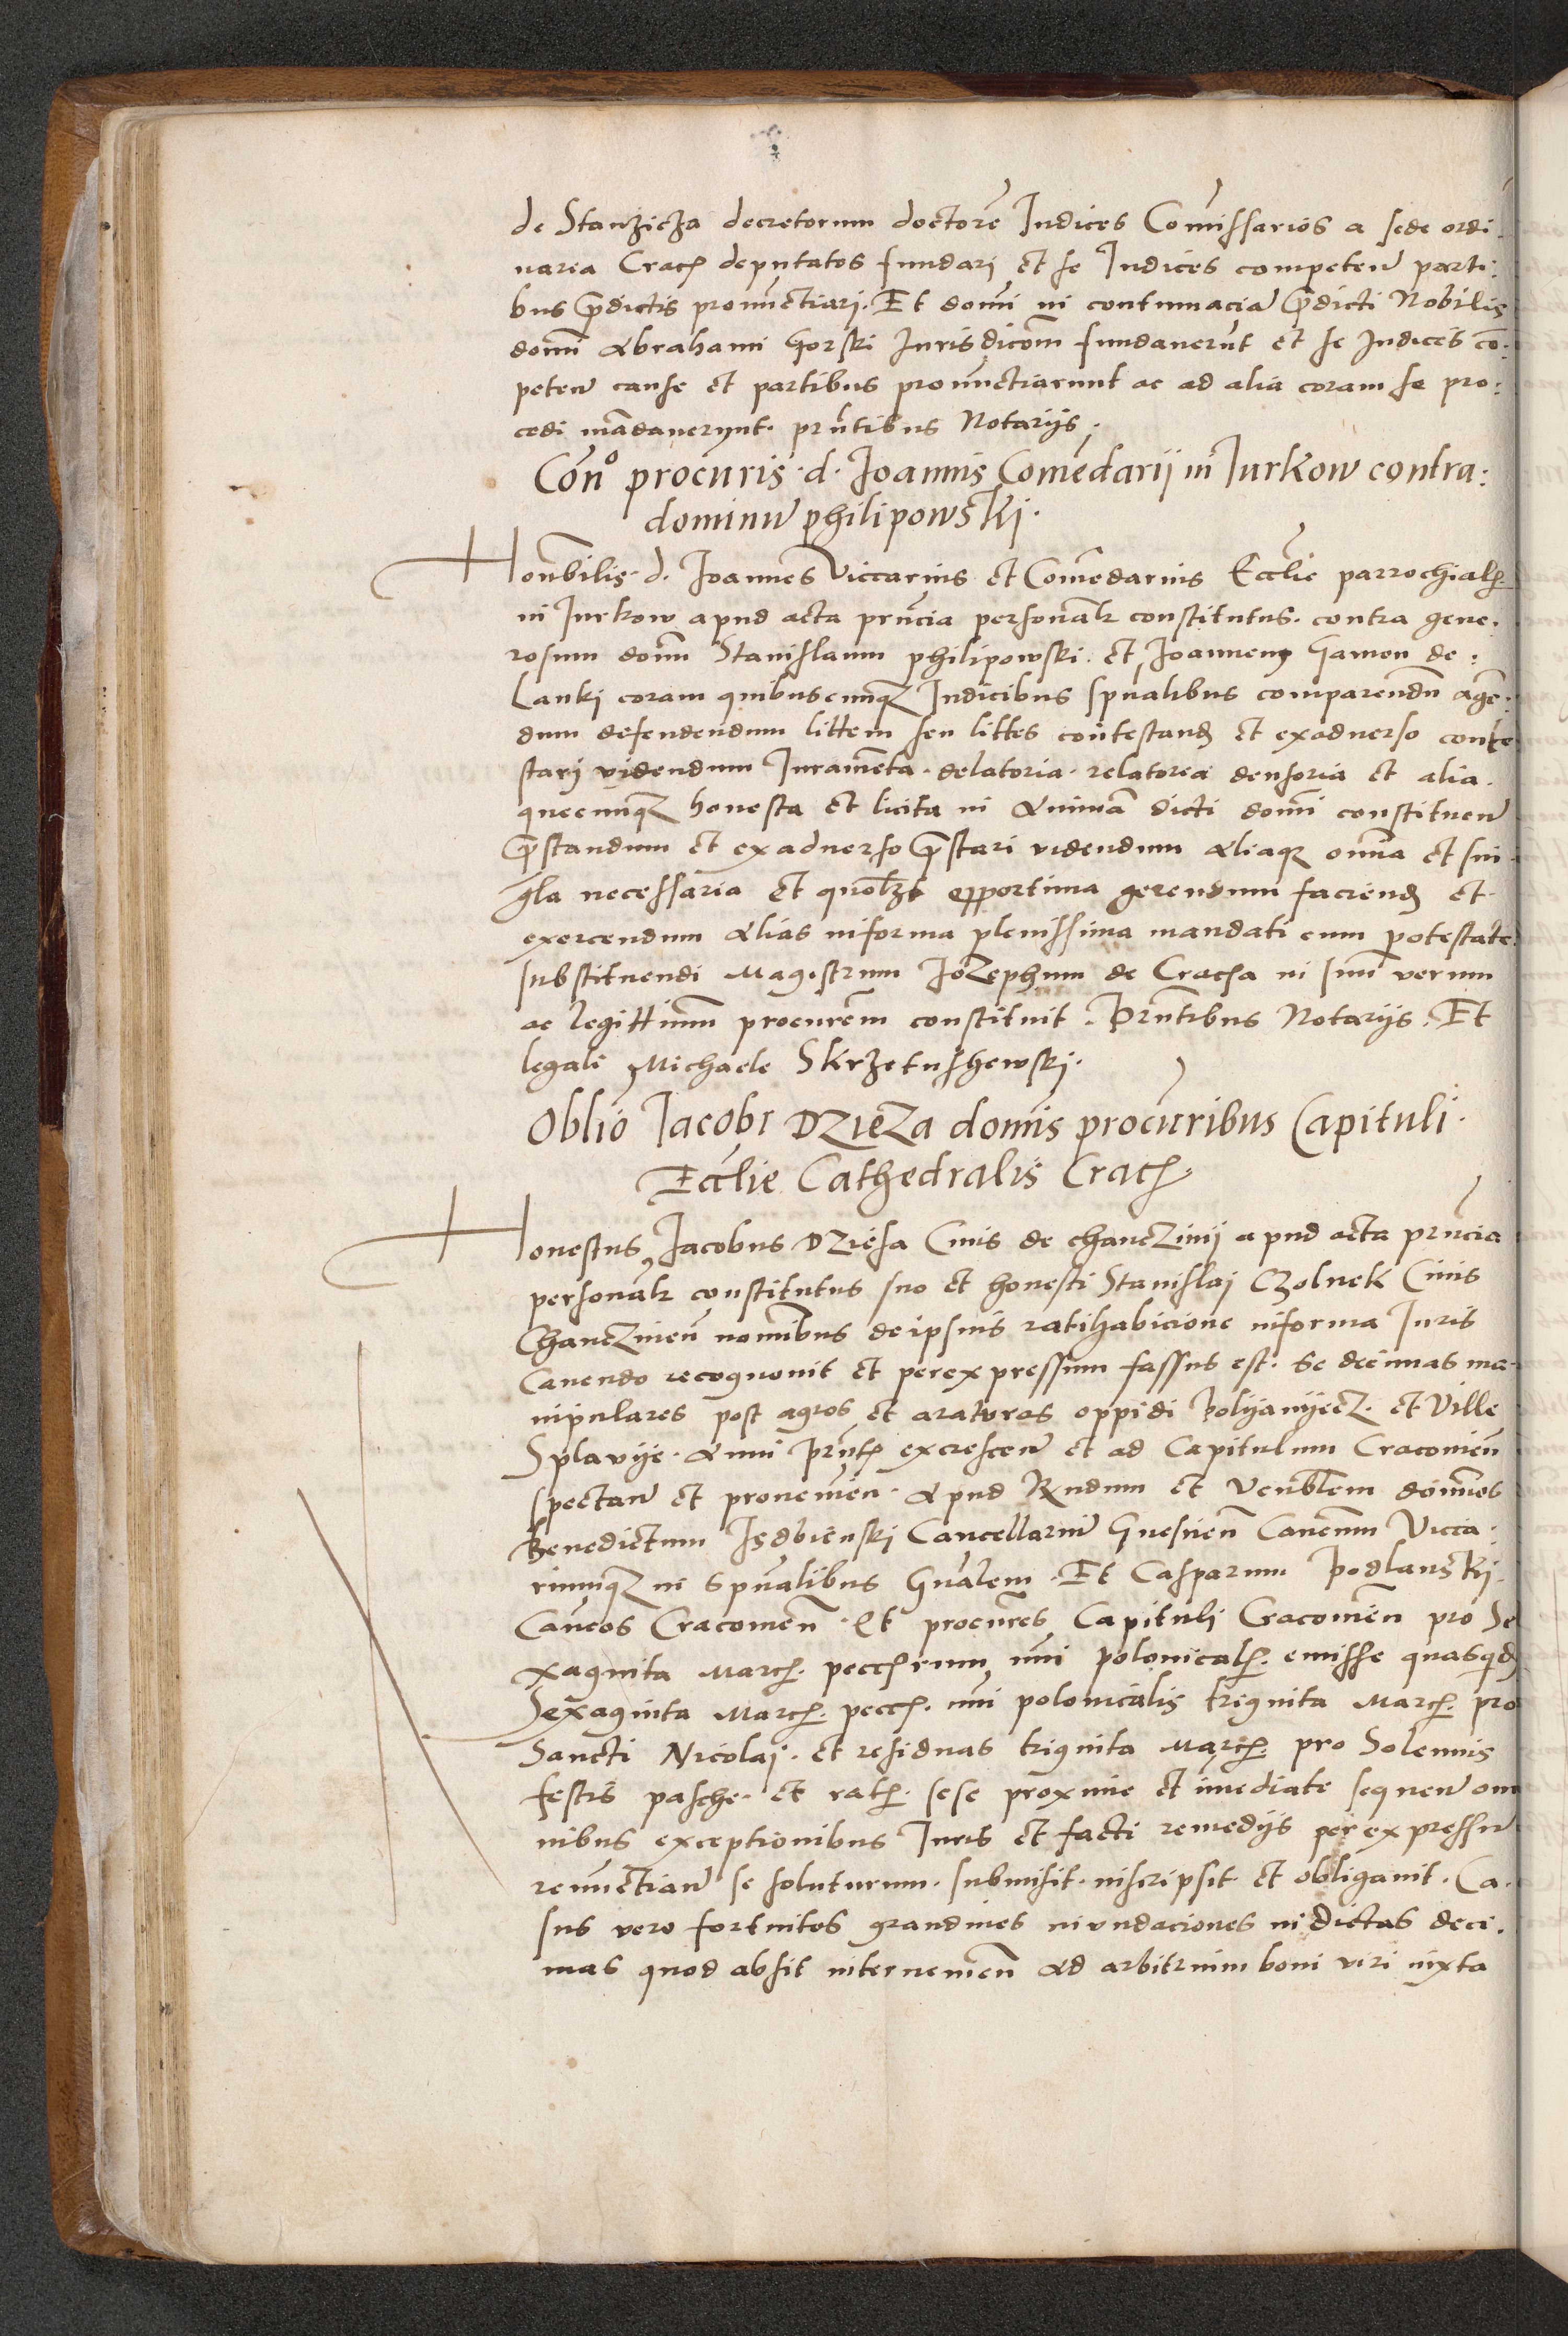 de Stanzicza decretorum doctorē Judices Comissarios a sede ordi:
naria Crac̄ deputatos fundari et se Judices competen̄ parti:
bus p̄dictis pronūctiari. Et domī in contumaciā p̄dicti Nobilis
domī Abrahami Gorski Jurisdicōm fundauerūt et se Judices cō:
peten̄ cause et partibus pronūctiarunt ac ad alia coram se pro:
cedi mādauerunt. pn̄tibus Notarijs.
Con̄o procuris d. Joannis Comēdarij in Jurkow contra:
dominū philipowski.
Honorabilis d. Joannes Viccarius et Comēdarius Ecclīe parrochial̄
in Jurkow apud acta pn̄cia personalr̄ constitutus. contra gene:
rosum domī Stanislaum philipowski. et Joannem Gamon de:
Lanki coram quibuscumq̄ Judicibus spūalibus comparendū agē:
dum defendendum littem seu littes contestand̄ et exaduerso conte
stari videndum Juramēta. delatoria. relatorea densoria et alia.
quecumq̄ honesta et licita in animā dicti domī constituen̄
p̄standum et exaduerso p̄stari videndum aliaq̄ omīa et sin
gla necessaria et quol̄zt opportuna gerendum faciend̄ et
exercendum alias in forma plenissima mandati cum potestate
substituendi Magistrum Jozephum de Crac̄a in suū verum
ac legittimū procurem̄ constituit. Pn̄tibus Notarijs. Et
legali Michaele Skrzetushewski.
Oblīo Jacobi Dzieza domīs procuribus Capituli.
Ecclīe Cathedralis Crac̄
Honestus Jacobus Dziesa Ciuis de chanczinij apud acta pn̄cia
personalr̄ constitutus suo et honesti Stanislaj Czolnek Ciuis
Chanczinen̄ nomībus de ipsius ratihabicione in forma Juris
Cauendo recognouit et per expressum fassus est. Se decimas ma
nipulares post agros et araturas oppidi Polyanyecz. et Ville
Splavije. Anni pn̄t̄ excrescen̄ et ad Capitulum Cracouien̄
spectan̄ et prouenien̄. Apud Rn̄dum et Venblem domīnos
Benedictum Isdbienski Cancellariū Gnesnen̄ Canc̄um Vicca.
riumq̄ in Spūalibus Gn̄alem. Et Casparum Podlanski
Can̄cos Cracouien̄. Et procures Capituli Cracouien̄ pro Se
xaginta Marc̄. pecc̄rum nūi polonical̄. emisse quasq̄d̄
Sexaginta Marc̄. pecc̄. nūi polonicalis triginta Marc̄. pro
Sancti Nicolaj. et residuas triginta Marc̄. pro Solennis
festis pasche. et rat̄. sese proxime et imediate sequen̄ om
nibus exceptionibus Juris et facti remedijs per expressū
renūctian̄ se soluturum. submisit. inscripsit et obligauit. Ca.
sus vero fortuitos grandines inundaciones in dictas deci.
mas quod absit interuenien̄ ad arbitrium boni viri iuxta